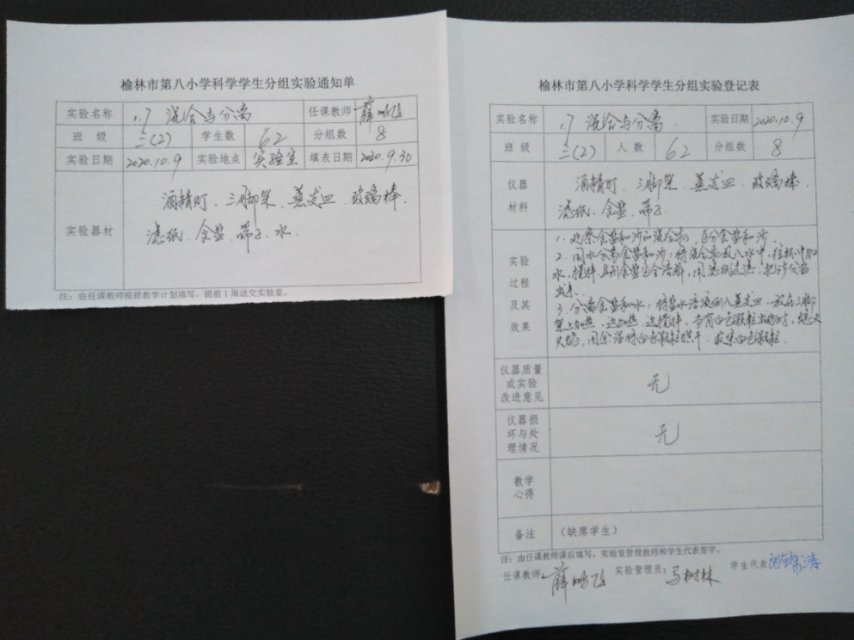 榆林市第八小学科学学生分组实验通知单
实验名称 1.7 混合与分离 任课教师 薛鹏飞
班 级 三(2) 学生数 62 分组数 8
实验日期 2020.10.9 实验地点 实验室 填表日期 2020.9.30
实验器材
酒精灯、三脚架、蒸发皿、玻璃棒、
滤纸、食盐、筛子、水、
注：由任课教师根据教学计划填写，提前1周送交实验室。
榆林市第八小学科学学生分组实验登记表
实验名称 1.7 混合与分离 实验日期 2020.10.9
班 级 三(2) 人 数 62 分组数 8
仪器
材料
酒精灯、三脚架、蒸发皿、玻璃棒、
滤纸、食盐、筛子
实验
过程
及其
效果
1、观察食盐和沙的混合物，区分食盐和沙
2、用水分离食盐和沙：将混合物放入水中，往杯中加
水，搅拌直到食盐完全溶解，用滤纸过滤，把沙分离
出来。
3、分离食盐和水：将盐水溶液倒入蒸发皿，放在三脚
架上加热，边加热，边搅拌，当有白色颗粒出现时，熄灭
火焰，用余温将白色颗粒烘干，收集白色颗粒。
仪器质量
或实验
改进意见
无
仪器损
坏与处
理情况
无
教学
心得
备注 （缺席学生）
注：由任课教师课后填写，实验室管理教师和学生代表签字。
任课教师 薛鹏飞 实验管理员：马树林 学生代表